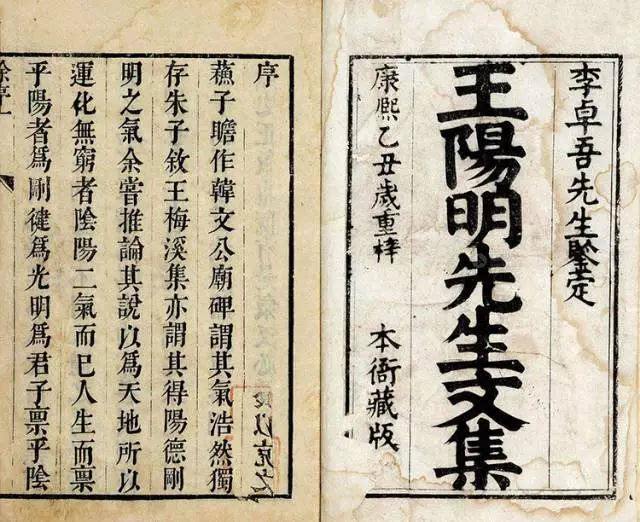 李卓吾先生鑒定
王陽明先生文集
康熙乙丑歲重梓
本衙藏版
序
蘓子瞻作韓文公廟碑謂其氣浩然獨
存朱子敘王梅溪集亦謂其得陽德剛
明之氣余嘗推論其說以為天地所以
運化無窮者陰陽二氣而已人生而禀
乎陽者為剛健為光明為君子禀乎陰